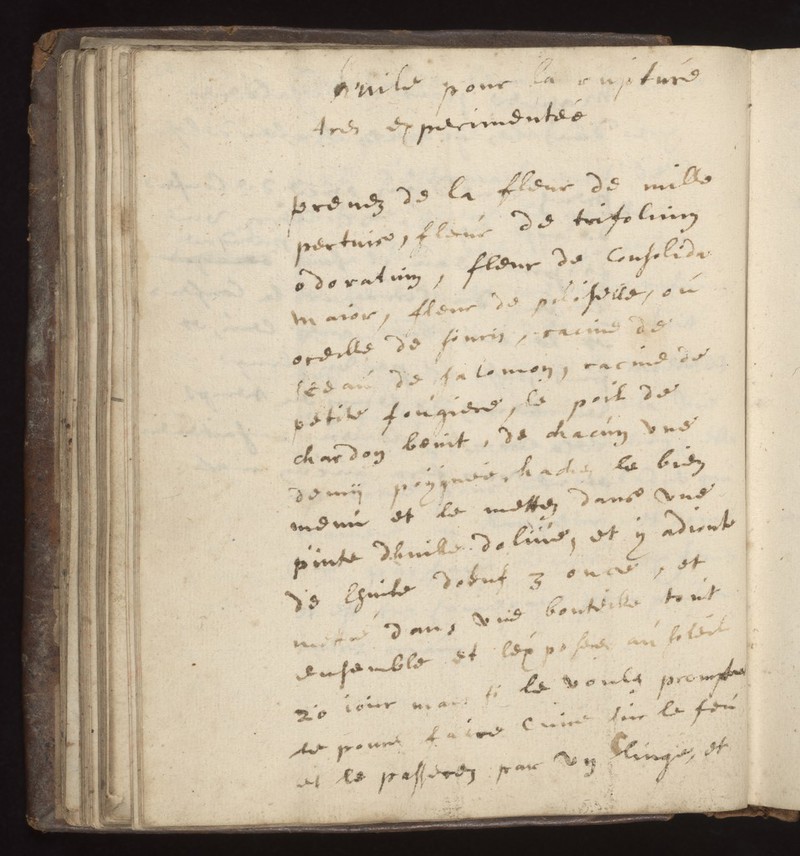 huile pour la rupture
tres experimenteé
prenez de la fleur de mille
pertuise, fleur de trifolium
odoratum, fleur de Consolida
maior, fleur de piloselle, ou
oreille de souris, racine de
séeau de salomon, racine de
petite fougiere, le poil de
chardon benit, de chacun une
demij poygneé, haches le bien
menu et le mettez dans une
pinte dhuille dolive, et y adioute
de lhuile dobuf 3 once, et
mettre dans une bouteille tout
ensemble et lexposer au soleil
20 iour mais si le voules prompte
te poures faire Cuire sur le feu
et le passerez par un linge, et